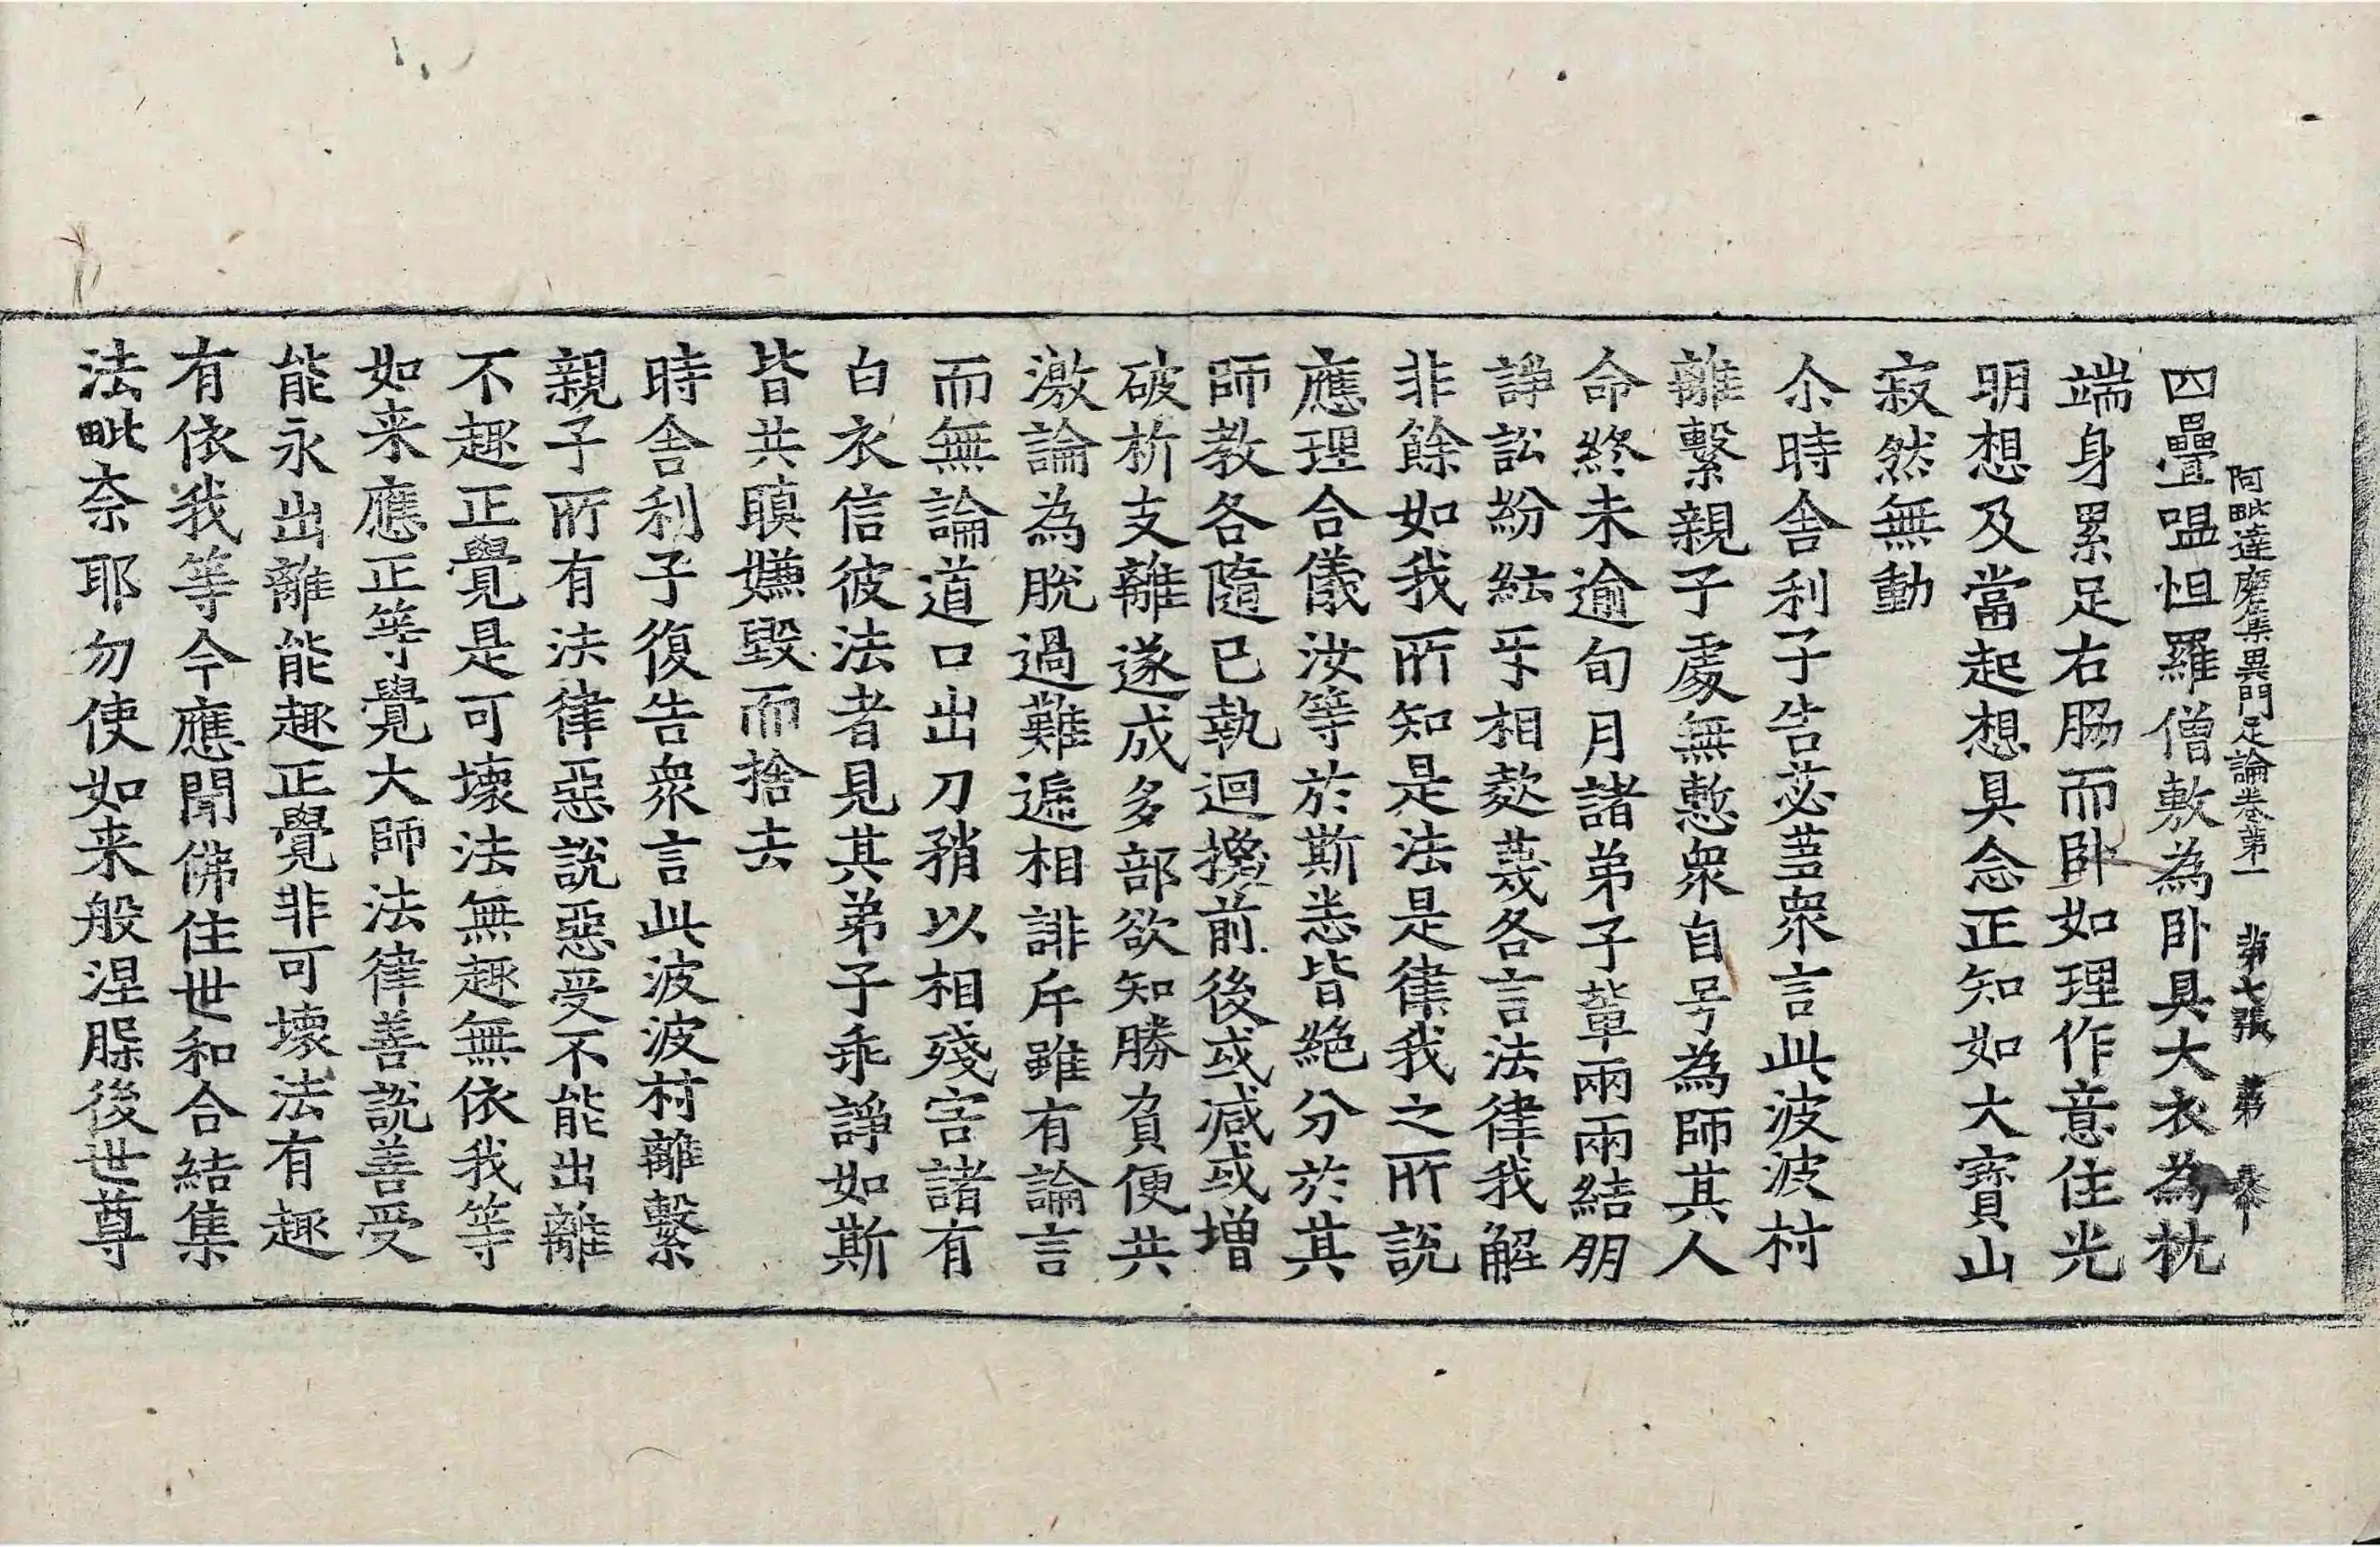 阿毗達磨集異門足論卷第一 第七張 第
四疊嗢怛羅僧敷為卧具大衣為枕
端身累足右脇而卧如理作意住光
明想及當起想具念正知如大寶山
寂然無動
尒時舍利子告苾蒭衆言此波波村
離繫親子處無慙衆自号為師其人
命終未逾旬月諸弟子輩兩兩結朋
諍訟紛紜㸦相欺蔑各言法律我解
非餘如我所知是法是律我之所說
應理合儀汝等於斯悉皆絶分於其
師教各隨已執迴換前後或減或增
破析支離遂成多部欲知勝負便共
激論為脫過難遞相誹斥雖有論言
而無論道口出刀矟以相殘害諸有
白衣信彼法者見其弟子乖諍如斯
皆共瞋嫌毀而捨去
時舍利子復告衆言此波波村離繫
親子所有法律惡說惡受不能出離
不趣正覺是可壞法無趣無依我等
如来應正等覺大師法律善說善受
能永出離能趣正覺非可壞法有趣
有依我等今應聞佛住世和合結集
法毗奈耶勿使如来般涅槃後世尊